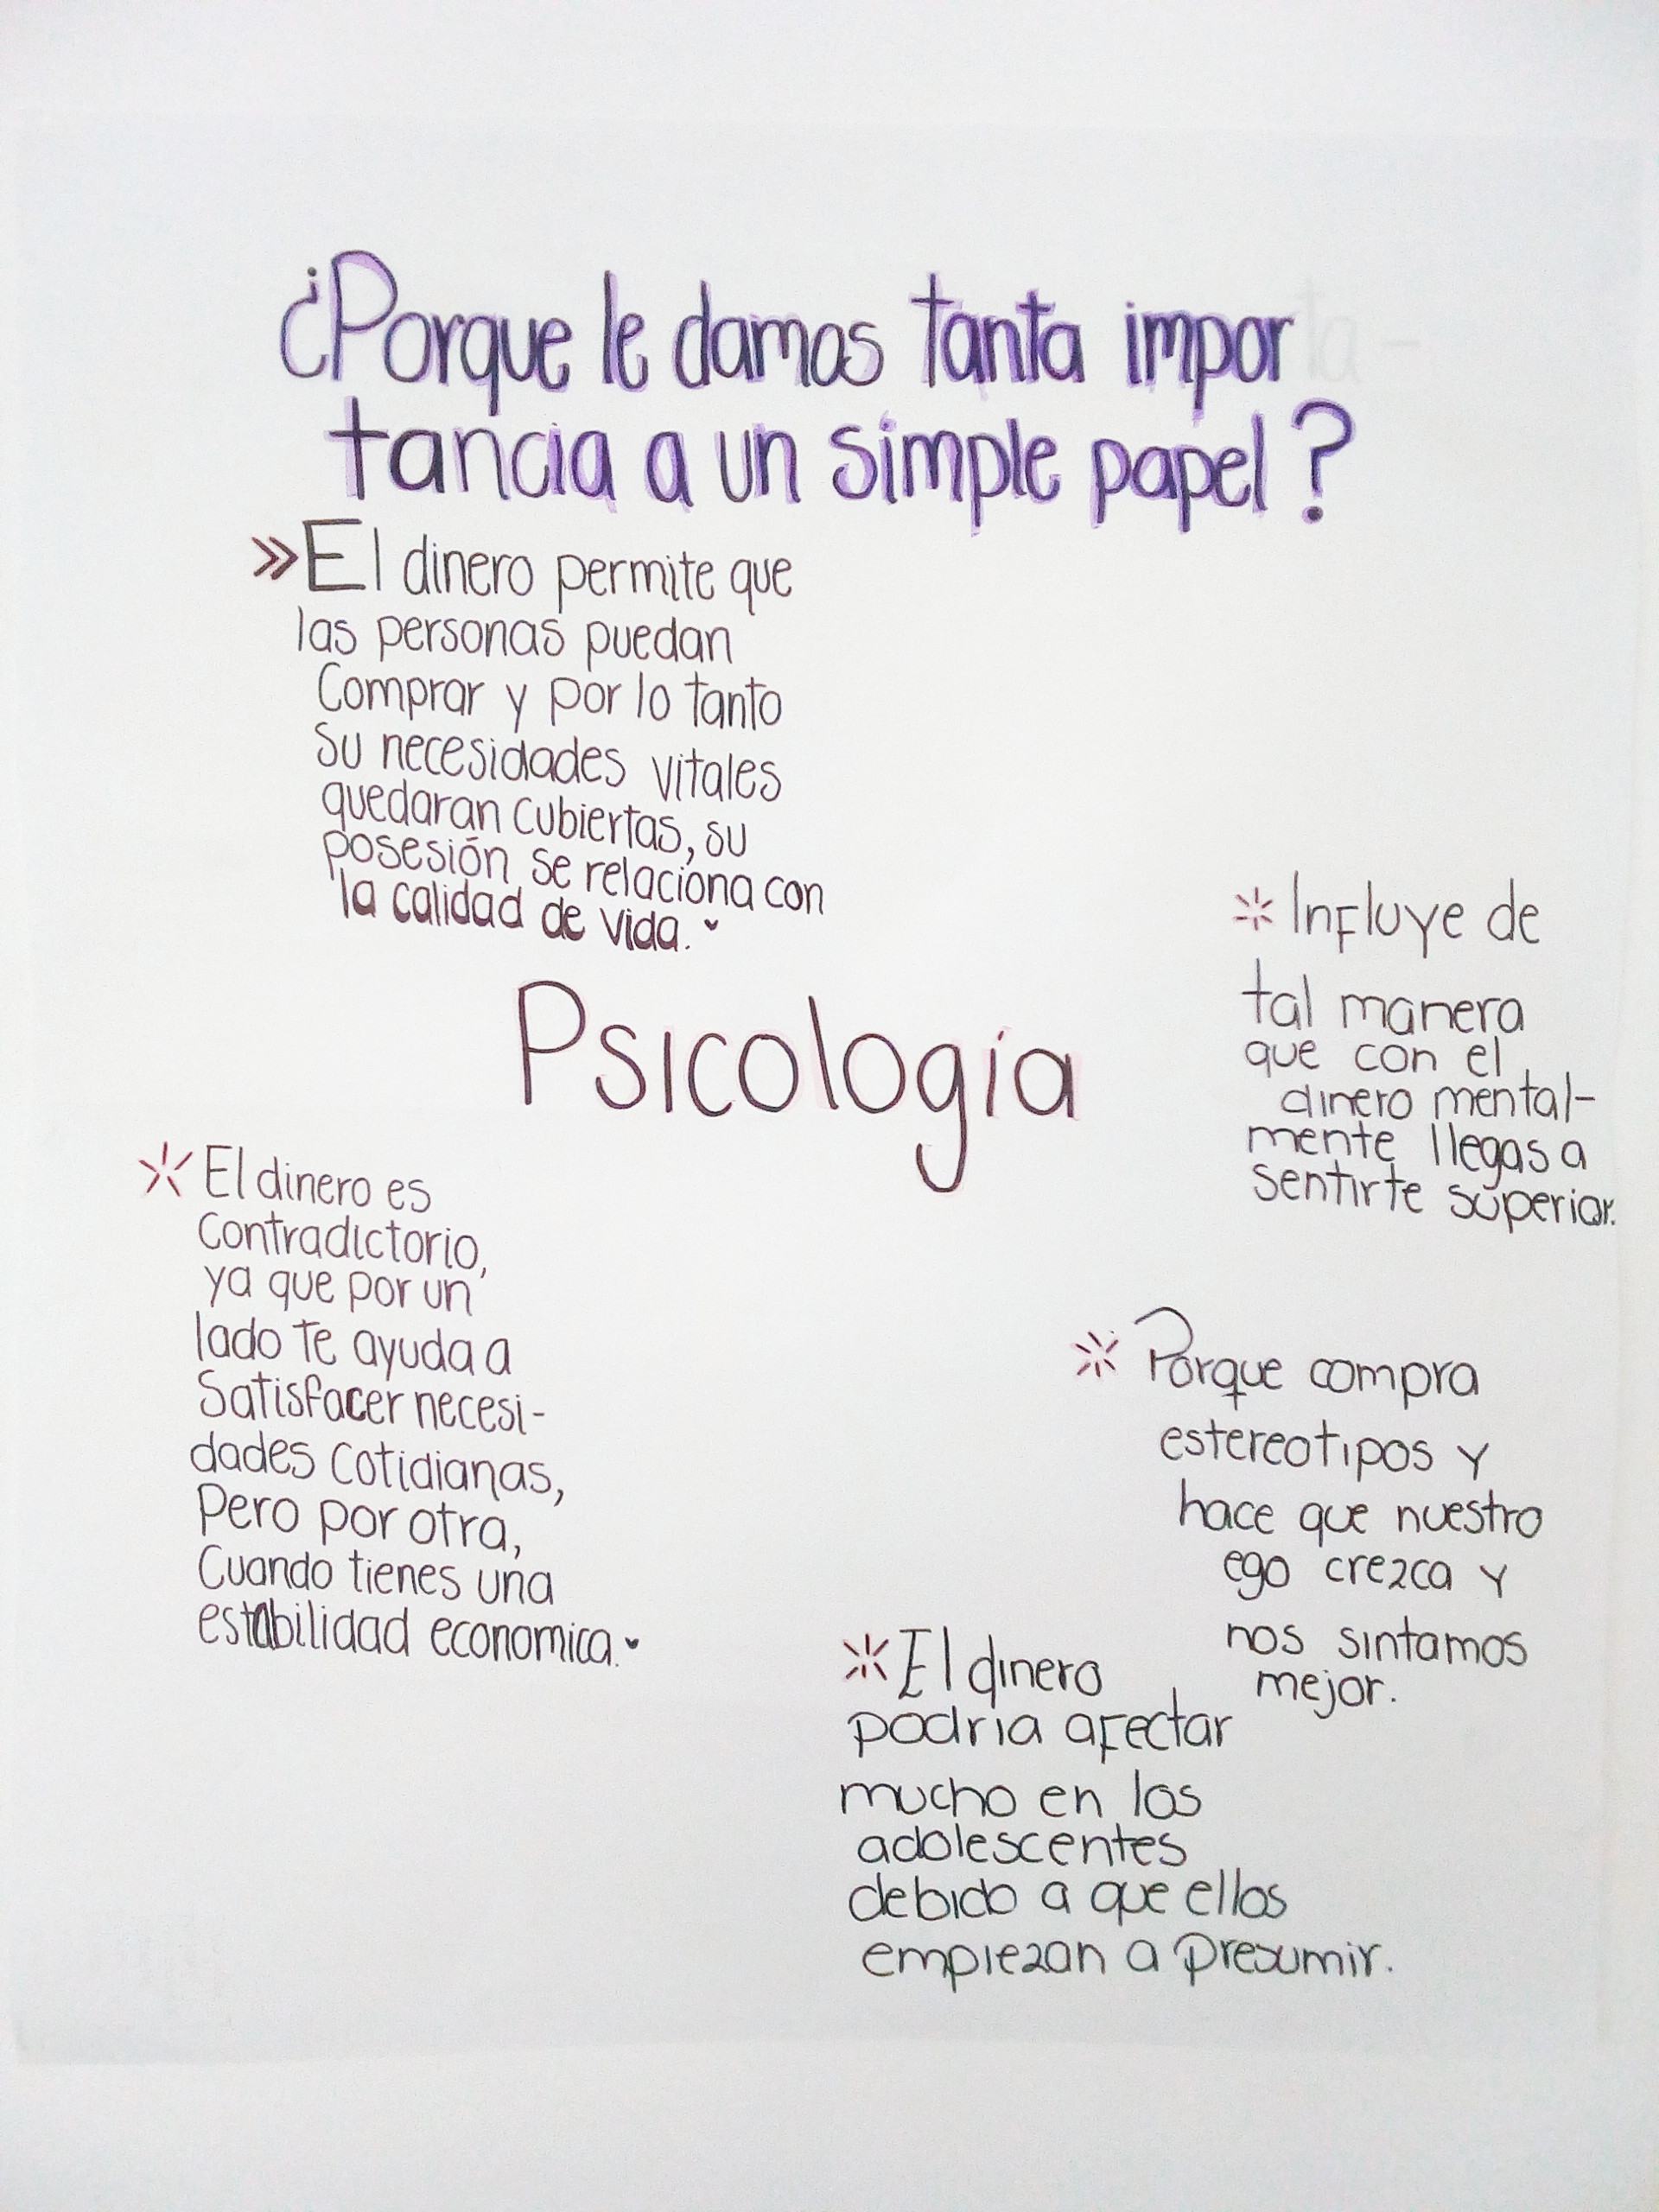 ¿Porque le damos tanta impor
tancia a un simple papel?
» El dinero permite que
las personas puedan
Comprar y por lo tanto
su necesidades vitales
quedaran cubiertas, su
posesión se relaciona con
la calidad de vida.
Psicología
* Influye de
tal manera
que con el
dinero mental-
mente llegas a
sentirte superior.
* El dinero es
Contradictorio,
ya que por un
lado te ayuda a
Satisfacer necesi-
dades cotidianas,
Pero por otra,
Cuando tienes una
estabilidad economica.
* Porque compra
estereotipos y
hace que nuestro
ego crezca y
nos sintamos
mejor.
* El dinero
podria afectar
mucho en los
adolescentes
debido a que ellos
empiezan a presumir.